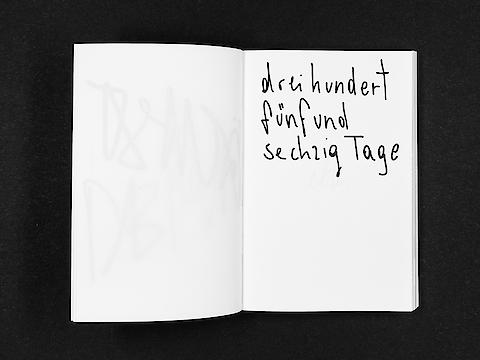 dreihundert
fünfund
sechzig Tage